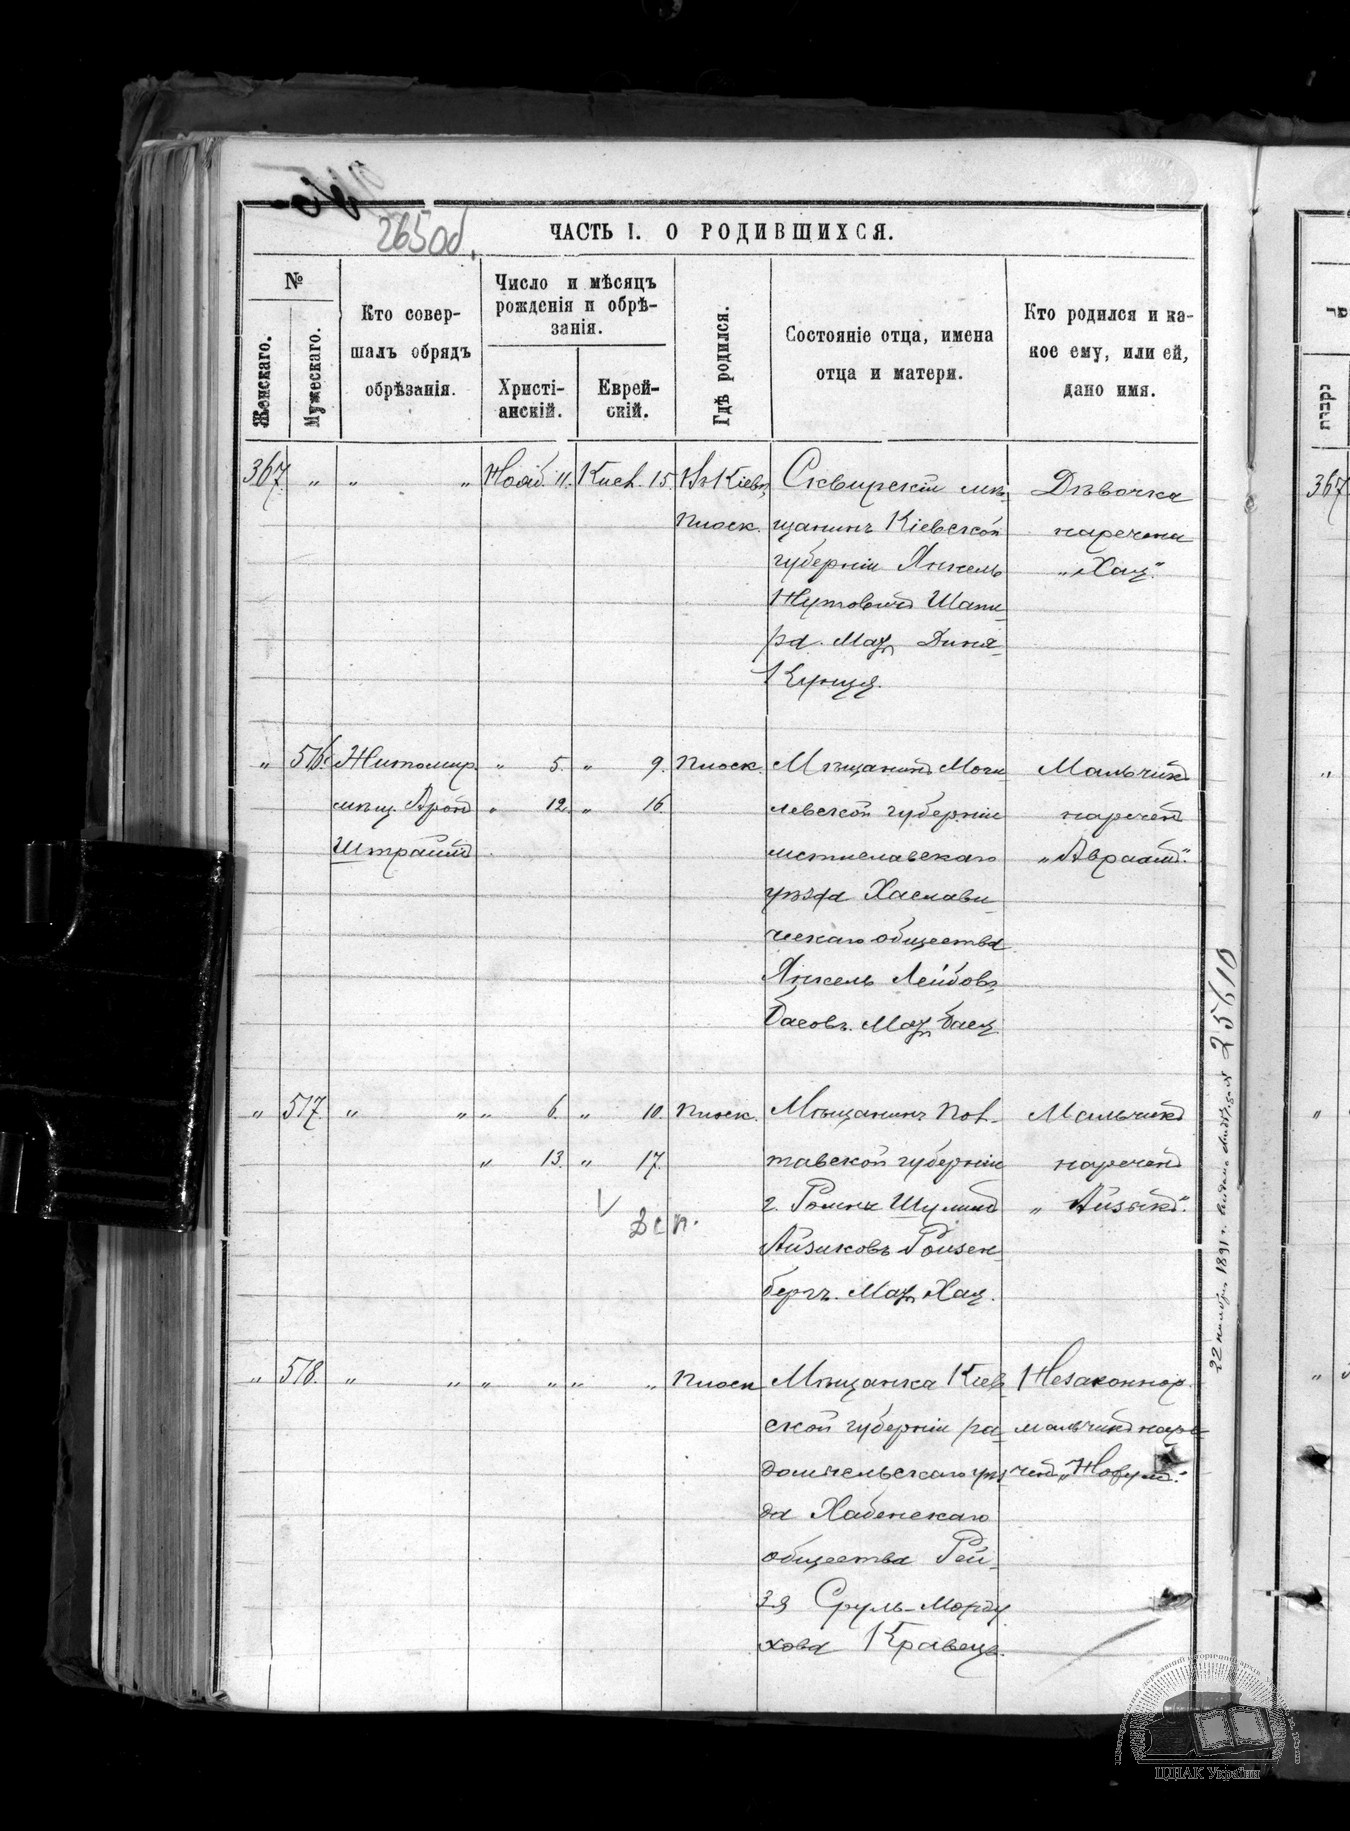 265 об.
ЧАСТЬ I. О РОДИВШИХСЯ.
№
Женскаго.
Мужескаго.
Кто совер-
шалъ обрядъ
обрѣзанія.
Число и мѣсяцъ
рожденія и обрѣ-
занія.
Христі-
анскій.
Еврей-
скій.
Гдѣ родился.
Состояніе отца, имена
отца и матери.
Кто родился и ка-
кое ему, или ей,
дано имя.
367. " " " Нояб. 11. Кисл. 15. Въ Кіевѣ,
Плоск.
Сквирскій мѣ-
щанинъ Кіевской
губерніи Янкель
Нутовичъ Шапи-
ра. Мать Диня-
Куница.
Дѣвочка
наречена
„Хая."
" 516. Житомир.
мѣщ. Аронъ
Штраймъ
" 5. " 9.
" 12. " 16
Плоск.
Мѣщанинъ Моги-
левской губерніи
мстиславскаго
уѣзда Хаслави-
ческаго общества
Янкель Лейбовъ
Басовъ. Мать Бася
Мальчикъ
нареченъ
„Авраамъ."
" 517. " " " 6. " 10.
" 13. " 17.
Плоск.
Мѣщанинъ Пол-
тавской губерніи
г. Ромны Шулимъ
Айзиковъ Ройзен-
бергъ. Мать Хая.
Мальчикъ
нареченъ
„Айзикъ."
" 518. " " " " " " Плоск
Мѣщанка Кіев-
ской губерніи ра-
домысльскаго уѣз-
да Хабенскаго
общества Рей-
зя Сруль-Морду
хова Кравецъ.
Незаконнор.
мальчикъ наре-
ченъ „Нохумъ."
22 ноября 1891 г. выдано 25610
367
נקבות
ЦДІАК України